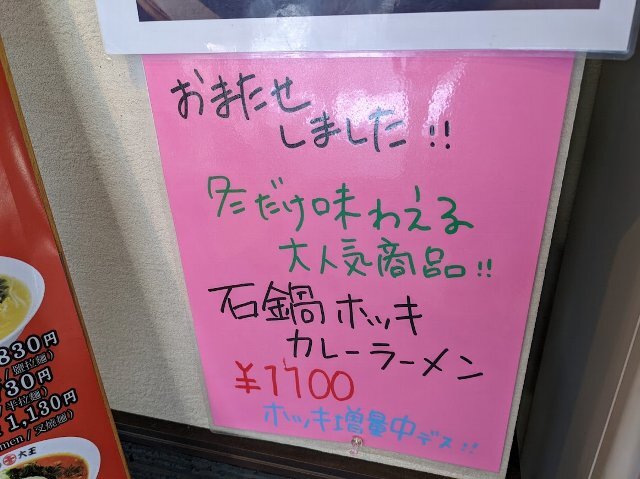 おまたせ
しました!!
冬だけ味わえる
大人気商品!!
石鍋ホッキ
カレーラーメン
¥1100
ホッキ増量中デス!!
830円
/ 鹽拉麺)
730円
/ 半拉麺)
1,130円
men / 叉焼麺)
大王